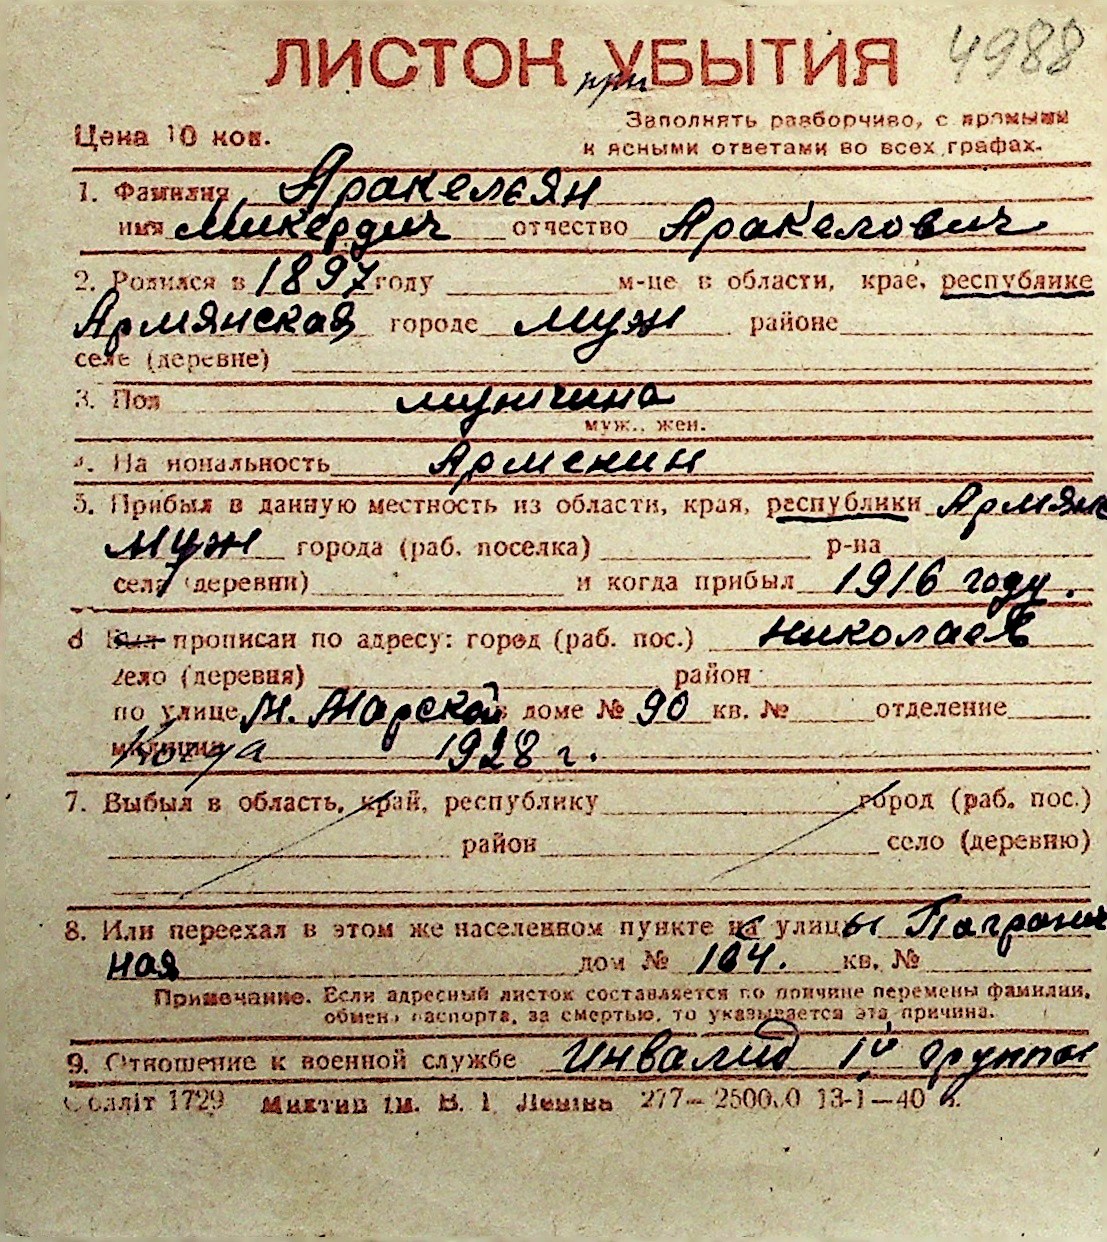 4988
ЛИСТОК при УБЫТИЯ
Цена 10 коп.
Заполнять разборчиво, с прямыми
и ясными ответами во всех графах.
1. Фамилия Аракельян
имя Микердич отчество Аракелович
2. Родился в 1897 году м-це в области, крае, республике
Армянская городе муж районе
селе (деревне)
3. Пол мужчина
муж., жен.
4. Национальность Арменин
5. Прибыл в данную местность из области, края, республики Армянс
муж города (раб. поселка) р-на
села (деревни) и когда прибыл 1916 году.
6 Был прописан по адресу: город (раб. пос.) Николаев
село (деревня) район
по улице М. Марской в доме № 90 кв. № отделение
милиции Когда 1928 г.
7. Выбыл в область, край, республику город (раб. пос.)
район село (деревню)
8. Или переехал в этом же населенном пункте на улицы Пагранич
ная дом № 164. кв. №
Примечание. Если адресный листок составляется по причине перемены фамилии,
обмена паспорта, за смертью, то указывается эта причина.
9. Отношение к военной службе Инвалид 1й группы
Обліт 1729 Миктип ім. В. І. Леніна 277— 250000 13-1—40 р.